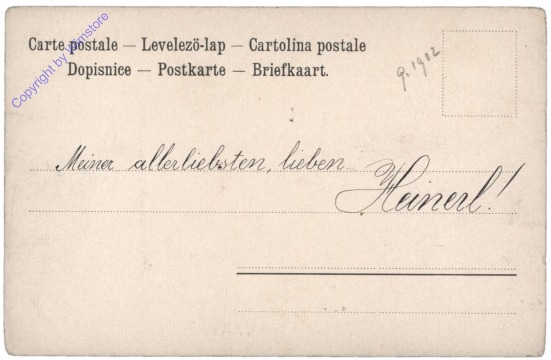 Carte postale — Levelező-lap — Cartolina postale
Dopisnice — Postkarte — Briefkaart.
g. 1902
Meiner allerliebsten, lieben
Heinerl!
Copyright by Wimstore